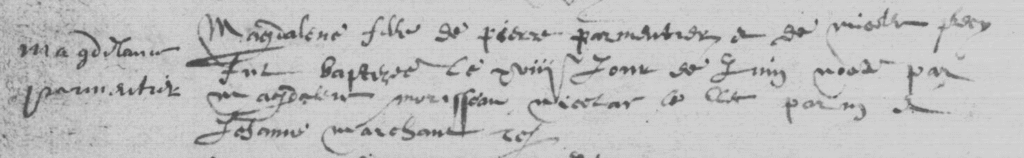 Magdalene
parmentier
Magdalene fille de pierre parmentier et de nicolle
Fut baptizee le xviij Jour de Juin nomée par
magdalene morisseau nicolas parin et
Jehanne marchant